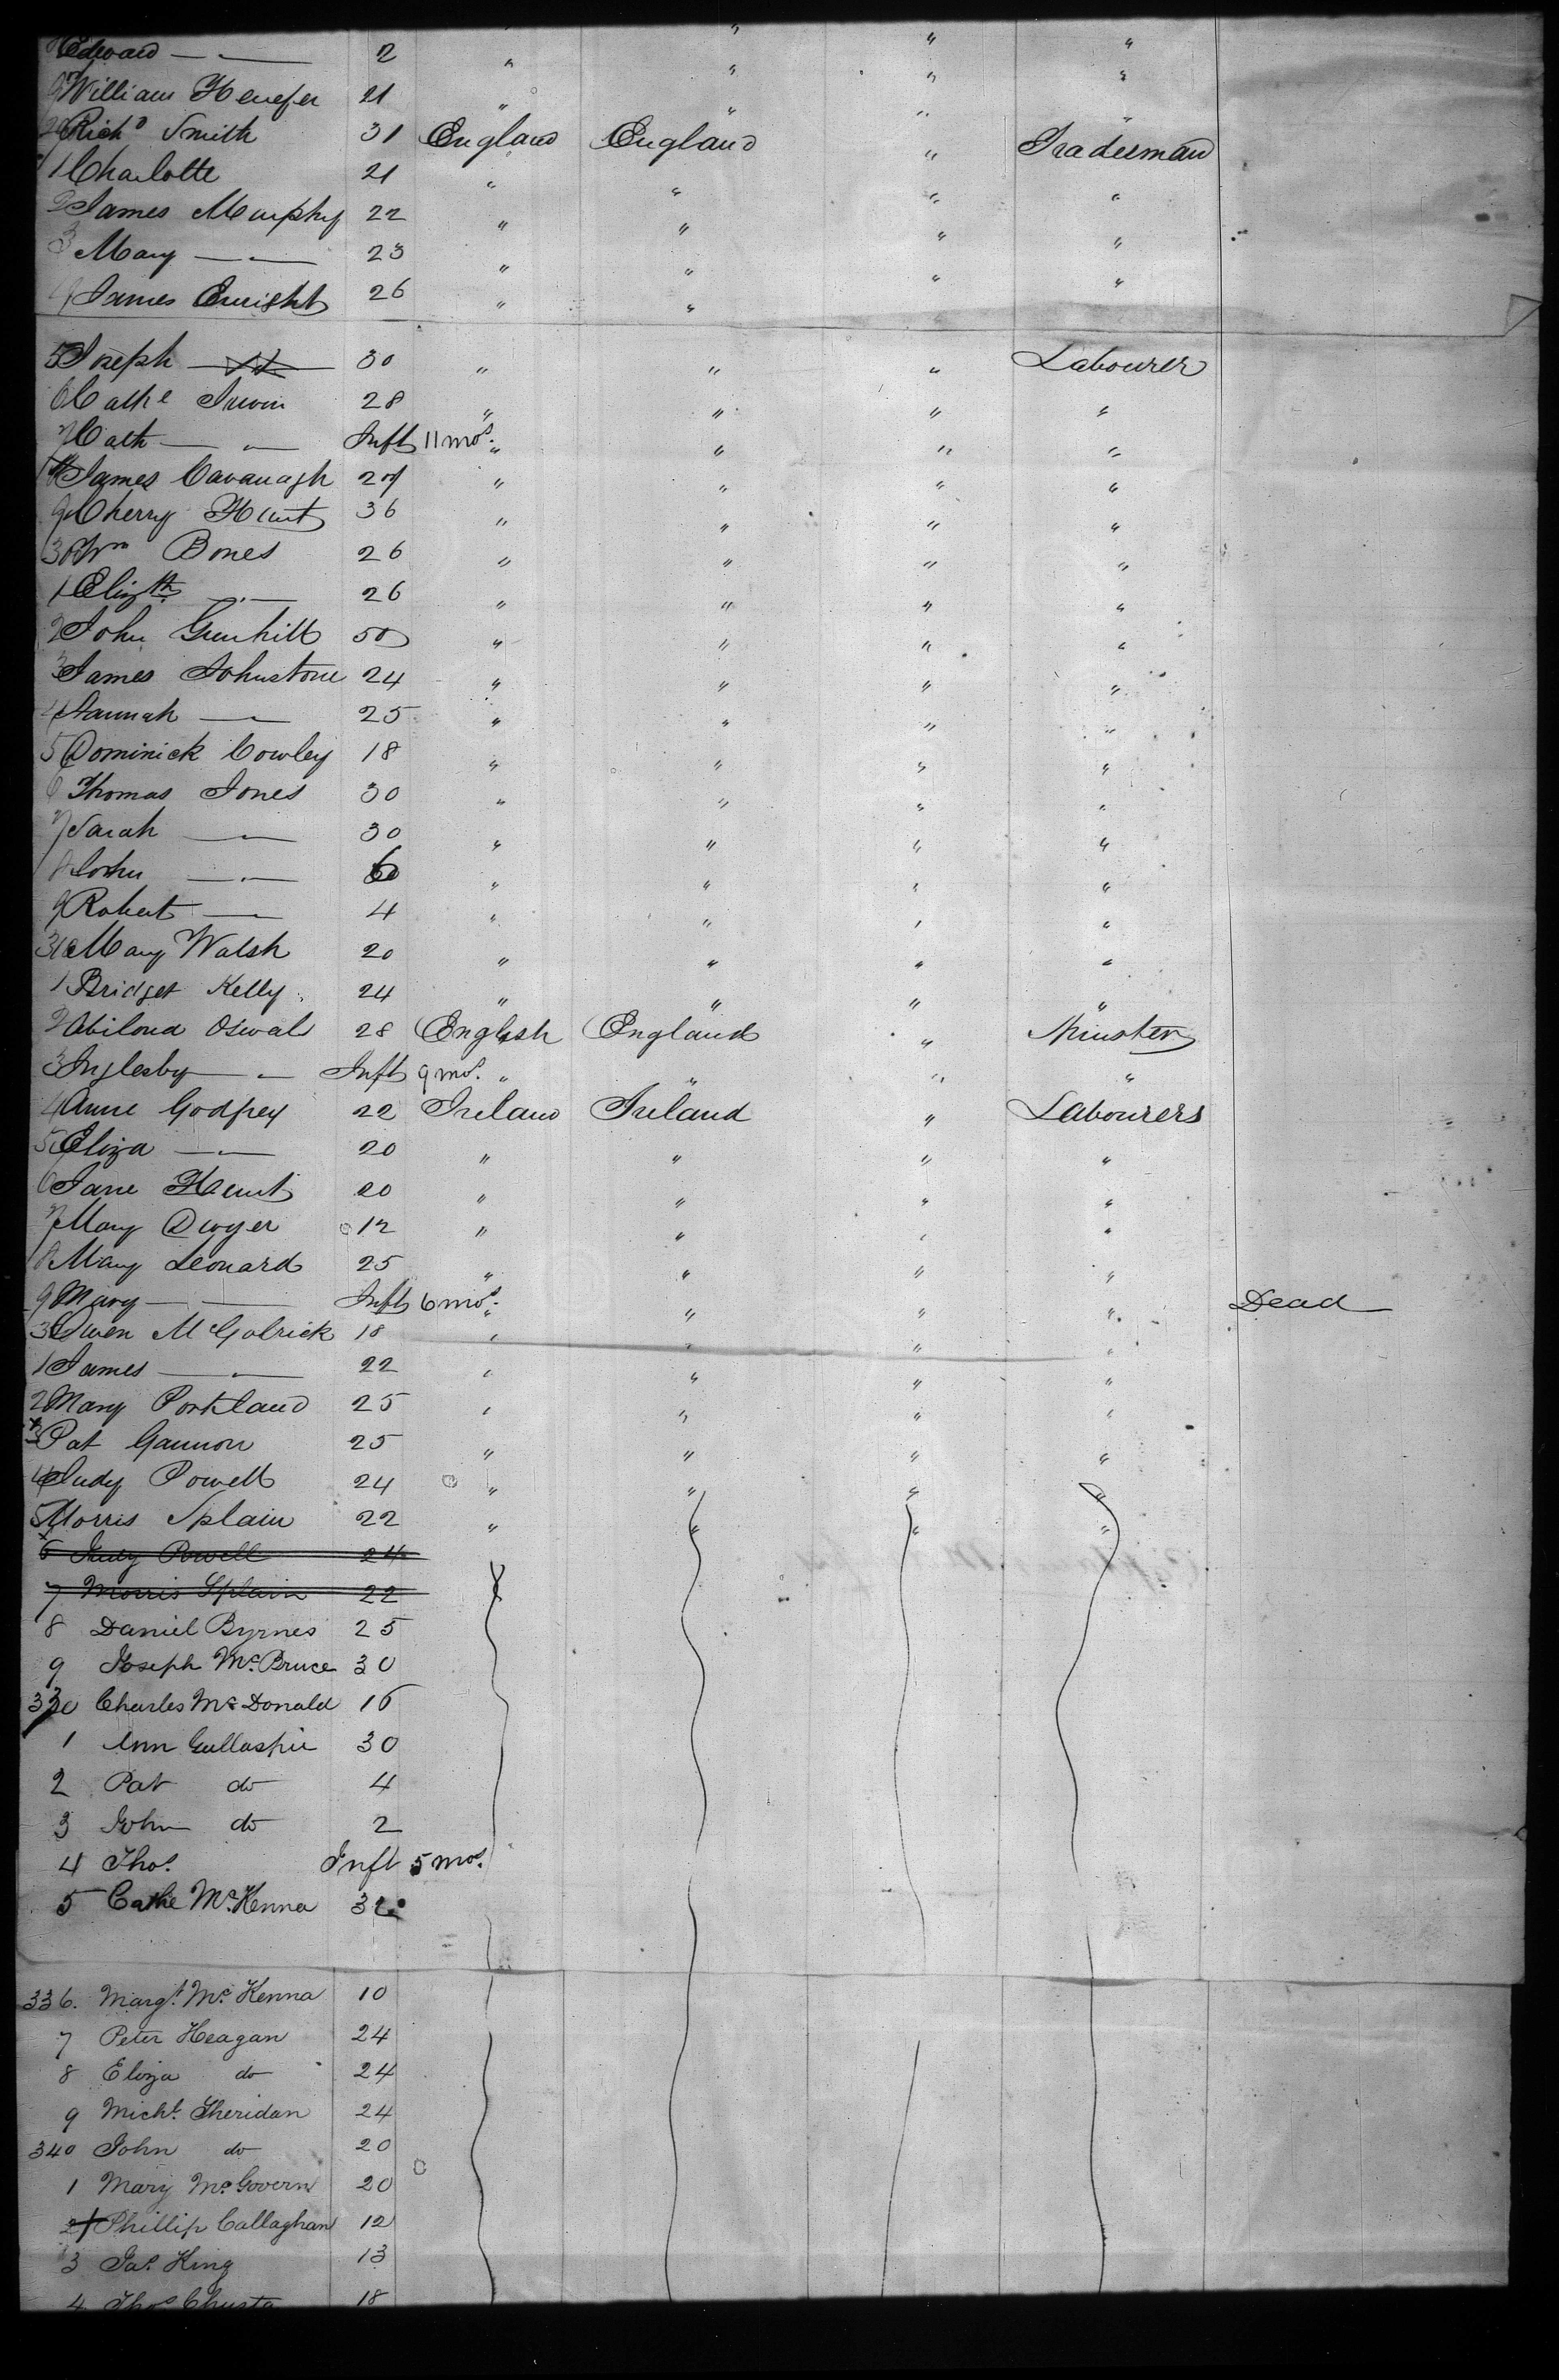 Edward — " — 2 " " " "
9 William Henefer 21 " " " "
Rich<sup>d</sup> Smith 31 England England " Tradesman
1 Charlotte 21 " " " "
2 James Murphy 22 " " " "
3 Mary — " — 23 " " " "
4 James Enright 26 " " " "
5 Joseph 30 " " " Labourer
6 Cath<sup>e</sup> Irwin 28 " " " "
7 Cath — " — Inft 11 mos. " " " "
James Cavanagh 27 " " " "
9 Cherry Hunt 36 " " " "
300 Wm Bones 26 " " " "
1 Eliz<sup>th</sup> — " — 26 " " " "
2 John Gunhill 50 " " " "
3 James Johnstone 24 " " " "
4 Hannah — " — 25 " " " "
5 Dominick Cowley 18 " " " "
6 Thomas Jones 30 " " " "
7 Sarah — " — 30 " " " "
8 John — " — 6 " " " "
9 Robert — " — 4 " " " "
310 Mary Walsh 20 " " " "
1 Bridget Kelly 24 " " " "
2 Oswald 28 English England " Minister
3 Inglesby — " — Inft 9 mos. " " " "
4 Anne Godfrey 22 Ireland Ireland " Labourers
5 Eliza — " — 20 " " " "
6 Jane Hunt 20 " " " "
7 Mary Dwyer 12 " " " "
8 Mary Leonard 25 " " " "
9 Mary — " — Inft 6 mos. " " " " Dead
Owen McGolrick 18 " " " "
1 James — " — 22 " " " "
2 Mary Portland 25 " " " "
3 Pat Gannon 25 " " " "
4 Judy Powell 24 " " " "
5 Morris Splain 22 " " " "
6 Judy Powell 24
7 Morris Splain 22
8 Daniel Byrnes 25
9 Joseph McBruce 30
330 Charles McDonald 16
1 Ann Gullaspie 30
2 Pat do 4
3 John do 2
4 Thos. Inft 5 mos.
5 Cathe McKenna 32
336. Margt. McKenna 10
7 Peter Heagan 24
8 Eliza do 24
9 Michl. Sheridan 24
340 John do 20
1 Mary McGovern 20
2 Phillip Callaghan 12
3 Jas. King 13
4 Thos 18